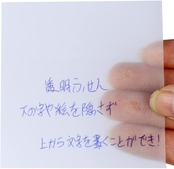 透明ふせん
下の字や絵を隠さず
上から文字を書くことができ!